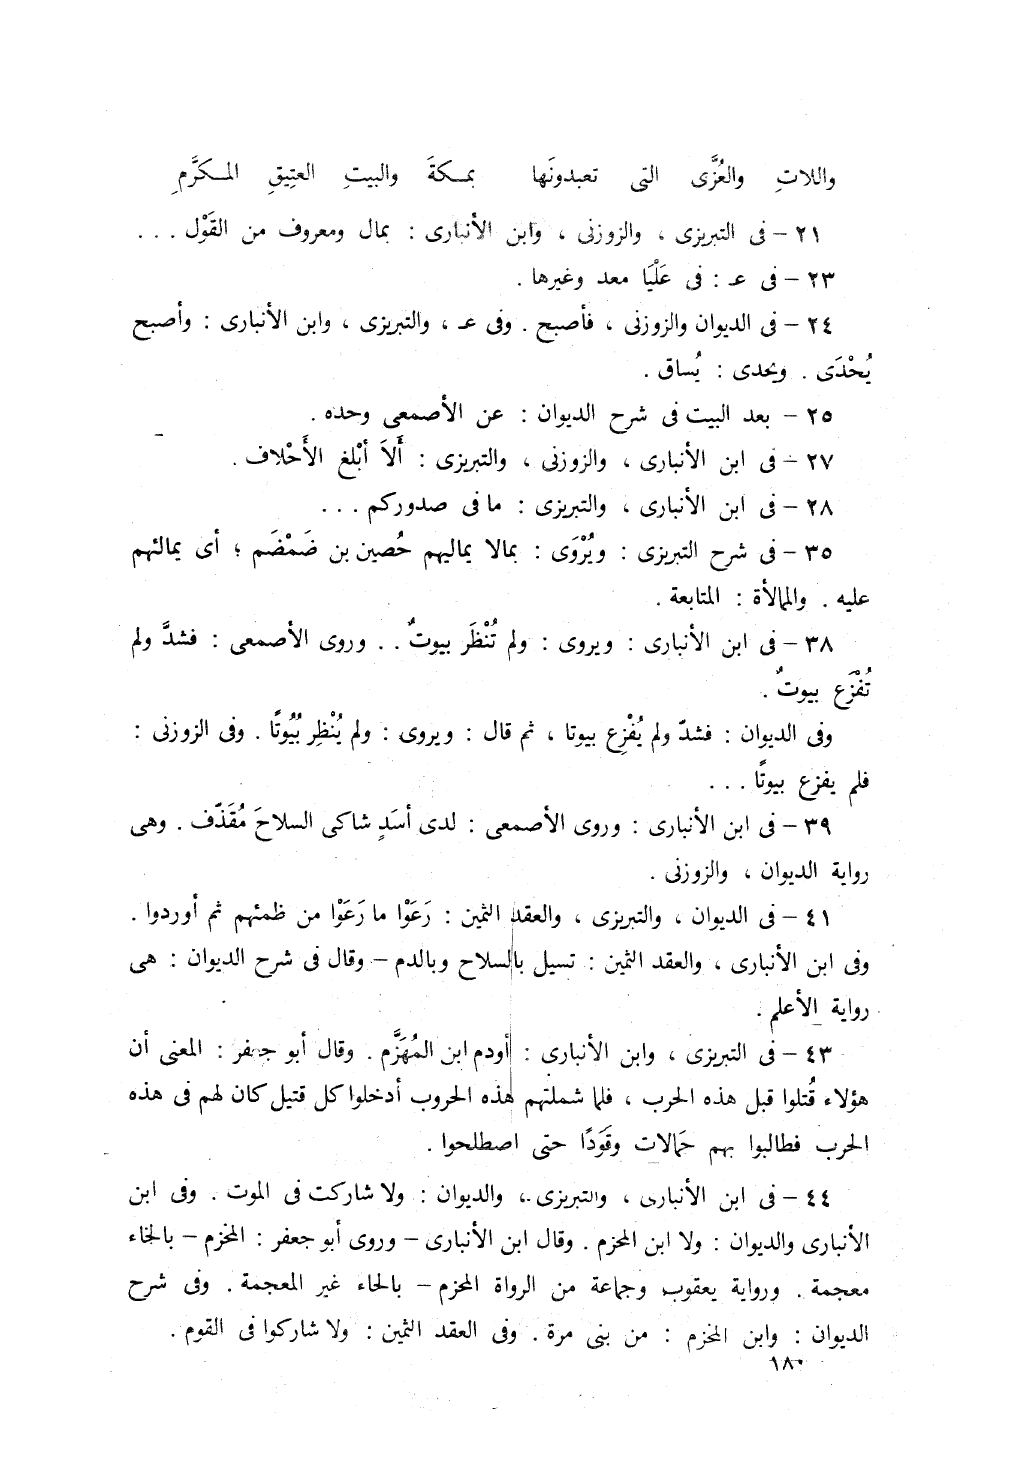 واللاتِ والعُزَّى التى تعبدونَها بمـكةَ والبيتِ العتِيقِ المـكرَّمِ
٢١ – فى التبريزى ، والزوزنى ، وابن الأنبارى : بمال ومعروف من القَوْل . . .
٢٣ – فى عـ : فى عَلْيَا معد وغيرها .
٢٤ – فى الديوان والزوزنى ، فأصبح . وفى عـ ، والتبريزى ، وابن الأنبارى : وأصبح
يُحْدَى . ويحدى : يُساق .
٢٥ – بعد البيت فى شرح الديوان : عن الأصمعى وحده .
٢٧ – فى ابن الأنبارى ، والزوزنى ، والتبريزى : أَلاَ أبْلغ الأَحْلاف .
٢٨ – فى ابن الأنبارى ، والتبريزى : ما فى صدوركم . . .
٣٥ – فى شرح التبريزى : ويُرْوَى : بمالا يماليهم حُصين بن ضَمْضَم ؛ أى يمالئهم
عليه . والممالأة : المتابعة .
٣٨ – فى ابن الأنبارى : ويروى : ولم تُنْظَر بيوتٌ . . وروى الأصمعى : فشدَّ ولم
تُفْزَع بيوتٌ .
وفى الديوان : فشدّ ولم يُفْزِع بيوتا ، ثم قال : ويروى : ولم يُنْظِر بُيُوتًا . وفى الزوزنى :
فلم يفزع بيوتًا . . .
٣٩ – فى ابن الأنبارى : وروى الأصمعى : لدى أسَدٍ شاكى السلاحَ مُقَذّف . وهى
رواية الديوان ، والزوزنى .
٤١ – فى الديوان ، والتبريزى ، والعقد الثمين : رَعَوْا ما رَعَوْا من ظمئهم ثم أوردوا .
وفى ابن الأنبارى ، والعقد الثمين : تسيل بالسلاح وبالدم – وقال فى شرح الديوان : هى
رواية الأعلم .
٤٣ – فى التبريزى ، وابن الأنبارى : أودم ابن المُهَزَّم . وقال أبو جعفر : المعنى أن
هؤلاء قُتلوا قبل هذه الحرب ، فلما شملتهم هذه الحروب أدخلوا كل قتيل كان لهم فى هذه
الحرب فطالبوا بهم حَمالات وقَوَدًا حتى اصطلحوا .
٤٤ – فى ابن الأنبارى ، والتبريزى ، والديوان : ولا شاركت فى الموت . وفى ابن
الأنبارى والديوان : ولا ابن المخزم . وقال ابن الأنبارى – وروى أبو جعفر : المخزم – بالخاء
معجمة . ورواية يعقوب وجماعة من الرواة المحزم – بالحاء غير المعجمة . وفى شرح
الديوان : وابن المخزم : من بنى مرة . وفى العقد الثمين : ولا شاركوا فى القوم .
١٨٠